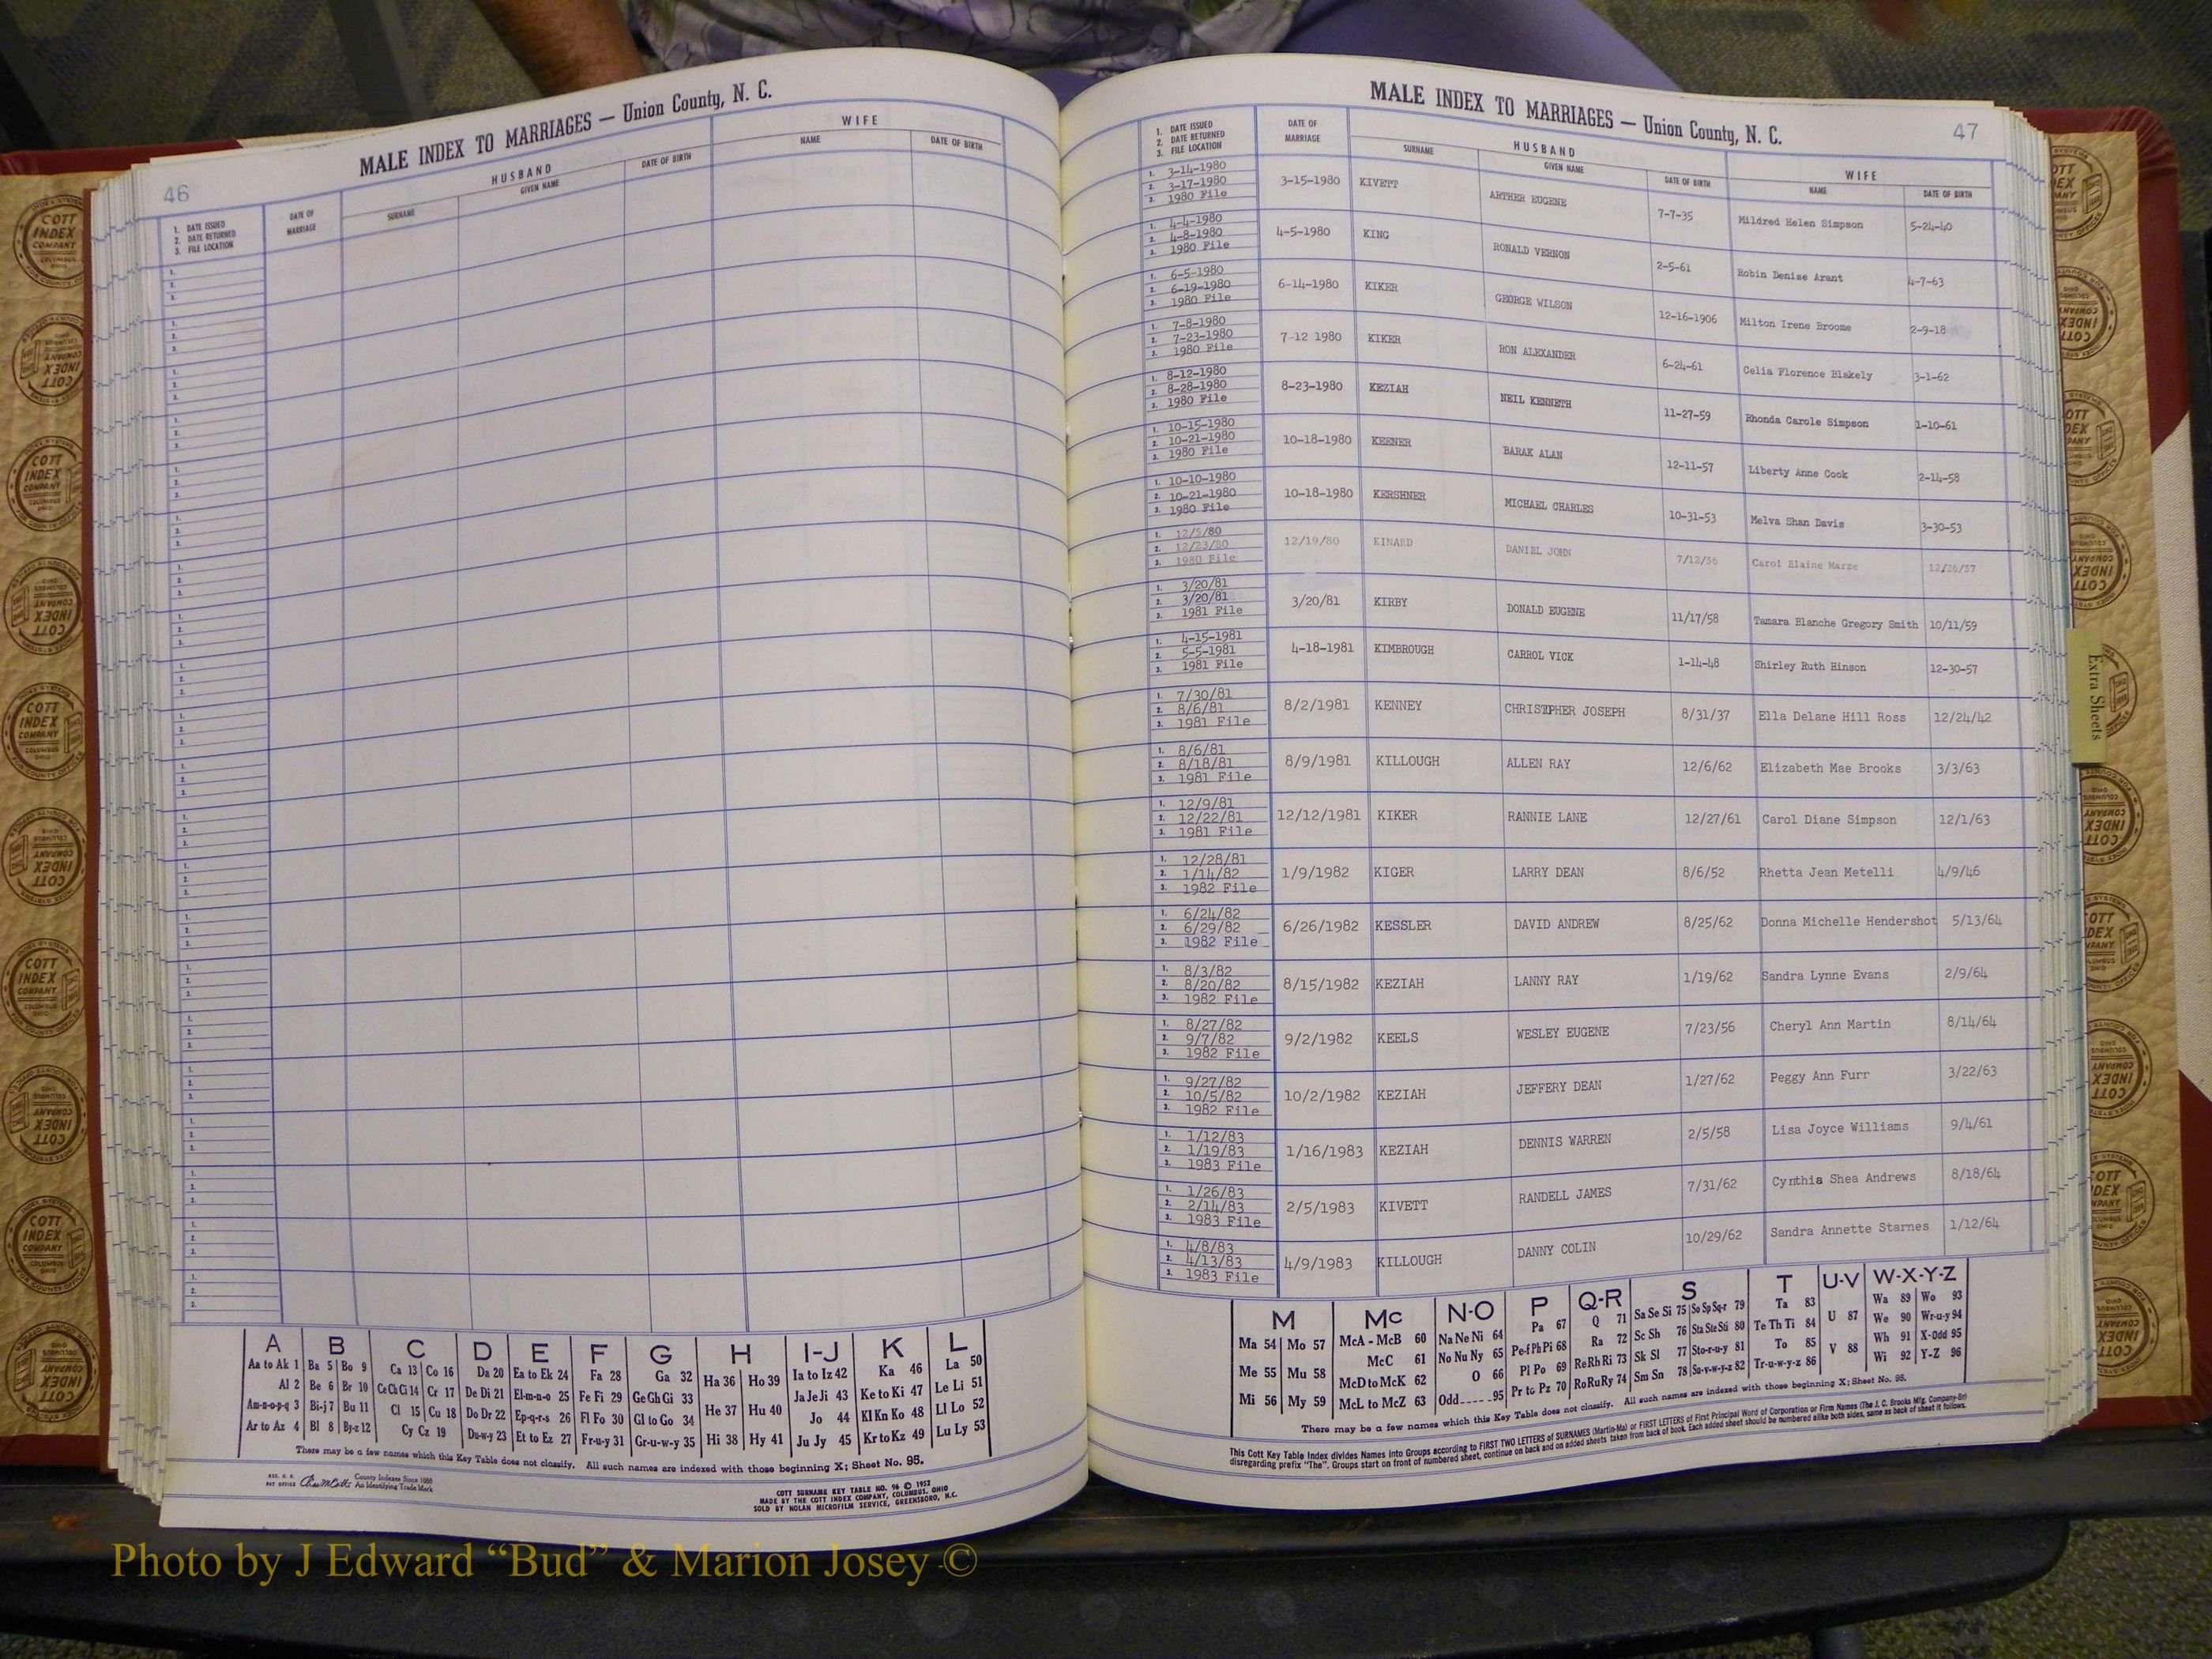 46
MALE INDEX TO MARRIAGES — Union County, N. C.
1. DATE ISSUED
2. DATE RETURNED
3. FILE LOCATION
DATE OF MARRIAGE
HUSBAND
SURNAME
GIVEN NAME
DATE OF BIRTH
WIFE
NAME
DATE OF BIRTH
A B C D E F G H I-J K L
Aa to Ak 1 Ba 5 Bo 9 Ca 13 Co 16 Da 20 Ea to Ek 24 Fa 28 Ga 32 Ha 36 Ho 39 Ia to Iz 42 Ka 46 La 50
Al 2 Be 6 Br 10 Ce Ch Ci 14 Cr 17 De Di 21 El-m-n-o 25 Fe Fi 29 Ge Gh Gi 33 He 37 Hu 40 Ja Je Ji 43 Ke to Ki 47 Le Li 51
Am-n-o-p-q 3 Bi-j 7 Bu 11 Cl 15 Cu 18 Do Dr 22 Ep-q-r-s 26 Fl Fo 30 Gl to Go 34 Hi 38 Hy 41 Jo 44 Kl Kn Ko 48 Ll Lo 52
Ar to Az 4 Bl 8 By-z 12 Cy Cz 19 Du-w-y 23 Et to Ez 27 Fr-u-y 31 Gr-u-w-y 35 Ju Jy 45 Kr to Kz 49 Lu Ly 53
There may be a few names which this Key Table does not classify. All such names are indexed with those beginning X; Sheet No. 95.
County Indexes Since 1888
An Identifying Trade Mark
COTT SURNAME KEY TABLE NO. 96 © 1952
MADE BY THE COTT INDEX COMPANY, COLUMBUS, OHIO
SOLD BY NOLAN MICROFILM SERVICE, GREENSBORO, N.C.
MALE INDEX TO MARRIAGES — Union County, N. C.
47
1. DATE ISSUED
2. DATE RETURNED
3. FILE LOCATION
DATE OF MARRIAGE
HUSBAND
SURNAME
GIVEN NAME
DATE OF BIRTH
WIFE
NAME
DATE OF BIRTH
1. 3-14-1980
2. 3-17-1980
3. 1980 File
3-15-1980 KIVETT ARTHER EUGENE 7-7-35 Mildred Helen Simpson 5-24-40
1. 4-4-1980
2. 4-8-1980
3. 1980 File
4-5-1980 KING RONALD VERNON 2-5-61 Robin Denise Arant 4-7-63
1. 6-5-1980
2. 6-19-1980
3. 1980 File
6-14-1980 KIKER GEORGE WILSON 12-16-1906 Milton Irene Broome 2-9-18
1. 7-8-1980
2. 7-23-1980
3. 1980 File
7-12 1980 KIKER RON ALEXANDER 6-24-61 Celia Florence Blakely 3-1-62
1. 8-12-1980
2. 8-28-1980
3. 1980 File
8-23-1980 KEZIAH NEIL KENNETH 11-27-59 Rhonda Carole Simpson 1-10-61
1. 10-15-1980
2. 10-21-1980
3. 1980 File
10-18-1980 KEENER BARAK ALAN 12-11-57 Liberty Anne Cook 2-14-58
1. 10-10-1980
2. 10-21-1980
3. 1980 File
10-18-1980 KERSHNER MICHAEL CHARLES 10-31-53 Melva Shan Davis 3-30-53
1. 12/5/80
2. 12/23/80
3. 1980 File
12/19/80 KINARD DANIEL JOHN 7/12/56 Carol Elaine Marze 12/26/57
1. 3/20/81
2. 3/20/81
3. 1981 File
3/20/81 KIRBY DONALD EUGENE 11/17/58 Tamara Blanche Gregory Smith 10/11/59
1. 4-15-1981
2. 5-5-1981
3. 1981 File
4-18-1981 KIMBROUGH CARROL VICK 1-14-48 Shirley Ruth Hinson 12-30-57
1. 7/30/81
2. 8/6/81
3. 1981 File
8/2/1981 KENNEY JOSEPH 8/31/37 Ella Delane Hill Ross 12/24/42
1. 8/6/81
2. 8/18/81
3. 1981 File
8/9/1981 KILLOUGH ALLEN RAY 12/6/62 Elizabeth Mae Brooks 3/3/63
1. 12/9/81
2. 12/22/81
3. 1981 File
12/12/1981 KIKER RANNIE LANE 12/27/61 Carol Diane Simpson 12/1/63
1. 12/28/81
2. 1/14/82
3. 1982 File
1/9/1982 KIGER LARRY DEAN 8/6/52 Rhetta Jean Metelli 4/9/46
1. 6/24/82
2. 6/29/82
3. 1982 File
6/26/1982 KESSLER DAVID ANDREW 8/25/62 Donna Michelle Hendershot 5/13/64
1. 8/3/82
2. 8/20/82
3. 1982 File
8/15/1982 KEZIAH LANNY RAY 1/19/62 Sandra Lynne Evans 2/9/64
1. 8/27/82
2. 9/7/82
3. 1982 File
9/2/1982 KEELS WESLEY EUGENE 7/23/56 Cheryl Ann Martin 8/14/64
1. 9/27/82
2. 10/5/82
3. 1982 File
10/2/1982 KEZIAH JEFFERY DEAN 1/27/62 Peggy Ann Furr 3/22/63
1. 1/12/83
2. 1/19/83
3. 1983 File
1/16/1983 KEZIAH DENNIS WARREN 2/5/58 Lisa Joyce Williams 9/4/61
1. 1/26/83
2. 2/14/83
3. 1983 File
2/5/1983 KIVETT RANDELL JAMES 7/31/62 Cynthia Shea Andrews 8/18/64
1. 4/8/83
2. 4/13/83
3. 1983 File
4/9/1983 KILLOUGH DANNY COLIN 10/29/62 Sandra Annette Starnes 1/12/64
M Mc N-O P Q-R S T U-V W-X-Y-Z
Ma 54 Mo 57 McA - McB 60 Na Ne Ni 64 Pa 67 Q 71 Sa Se Si 75 So Sp Sq-r 79 Ta 83 U 87 Wa 89 Wo 93
Me 55 Mu 58 McC 61 No Nu Ny 65 Pe-f Ph Pi 68 Ra 72 Sc Sh 76 Sta Ste Sti 80 Te Th Ti 84 V 88 We 90 Wr-u-y 94
Mi 56 My 59 McD to McK 62 O 66 Pl Po 69 Re Rh Ri 73 Sk Sl 77 Sto-r-u-y 81 To 85 Wh 91 X-Odd 95
McL to McZ 63 Odd 95 Pr to Pz 70 Ro Ru Ry 74 Sm Sn 78 Su-v-w-y-z 82 Tr-u-w-y-z 86 Wi 92 Y-Z 96
There may be a few names which this Key Table does not classify. All such names are indexed with those beginning X; Sheet No. 95.
This Cott Key Table Index divides Names into Groups according to FIRST TWO LETTERS of SURNAMES (Martin-Ma) or FIRST LETTERS of First Principal Word of Corporation or Firm Names (The J. C. Brooks Mfg. Company-Br)
disregarding prefix "The". Groups start on front of numbered sheet, continue on back and on added sheets taken from back of book. Each added sheet should be numbered alike both sides, same as back of sheet it follows.
Extra Sheets
COTT
INDEX
COMPANY
COLUMBUS
OHIO
Photo by J Edward “Bud” & Marion Josey ©